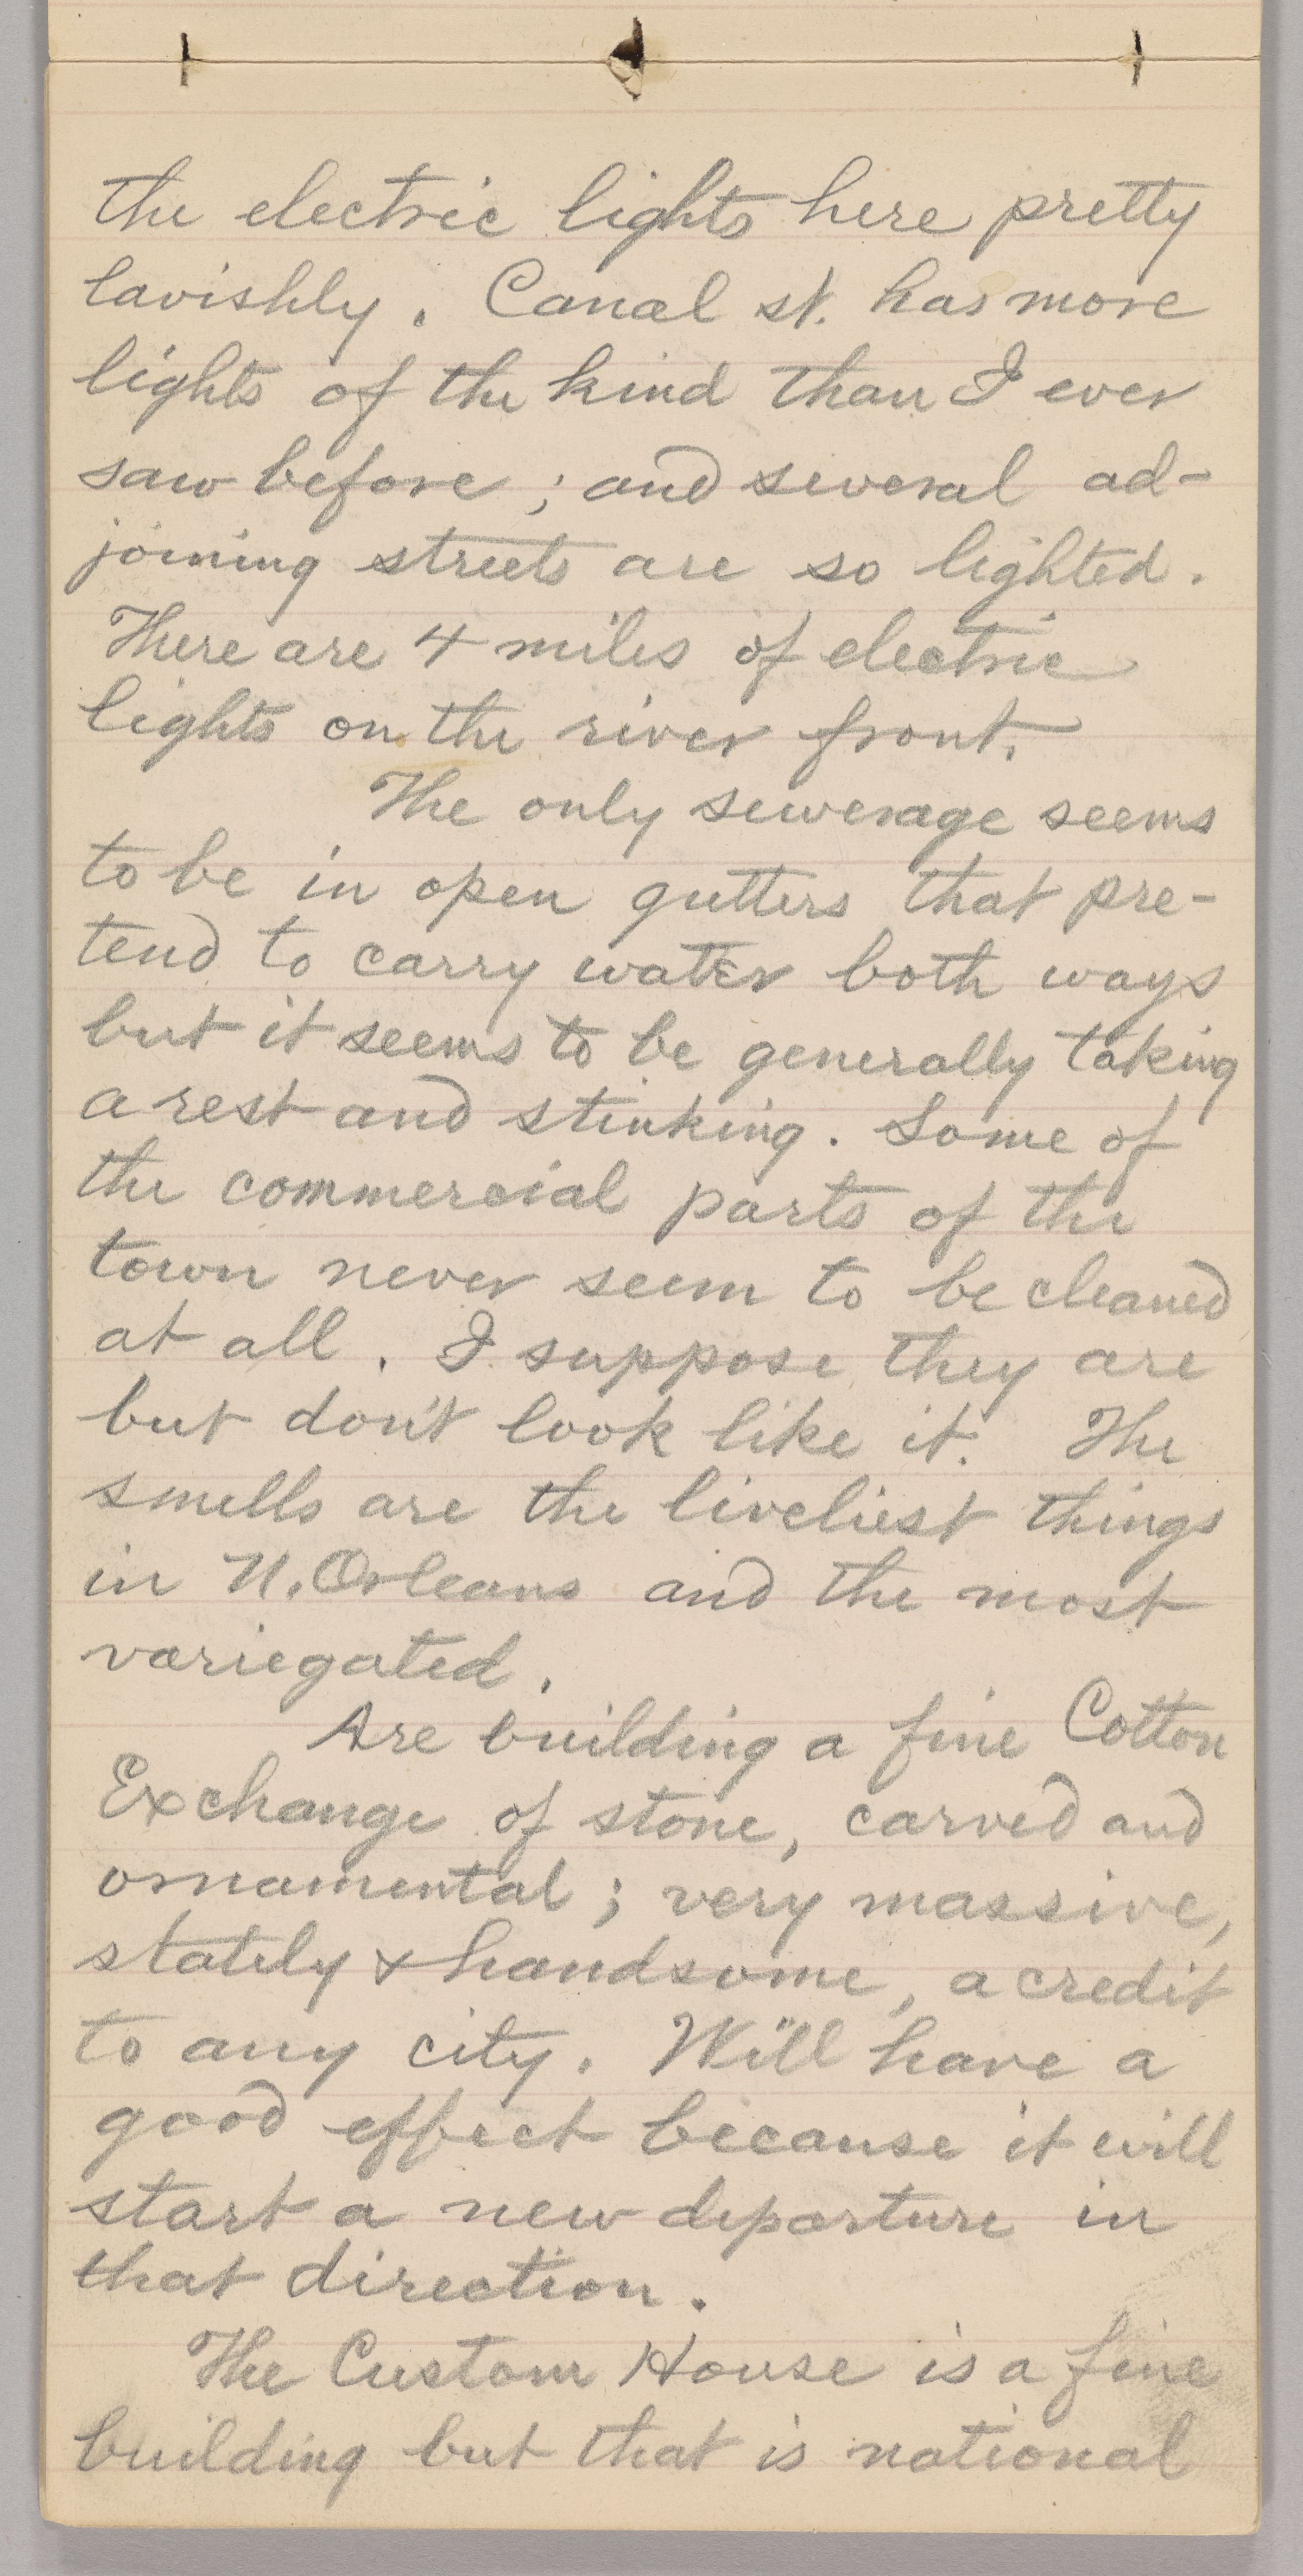 the electric lights here pretty
lavishly. Canal st. has more
lights of the kind than I ever
saw before; and several ad-
joining streets are so lighted.
There are 4 miles of electric
lights on the river front.
The only sewerage seems
to be in open gutters that pre-
tend to carry water both ways
but it seems to be generally taking
a rest and stinking. Some of
the commercial parts of the
town never seem to be cleaned
at all. I suppose they are
but don't look like it. The
smells are the liveliest things
in N. Orleans and the most
variegated.
Are building a fine Cotton
Exchange of stone, carved and
ornamental; very massive,
stately & handsome, a credit
to any city. Will have a
good effect because it will
start a new departure in
that direction.
The Custom House is a fine
building but that is national